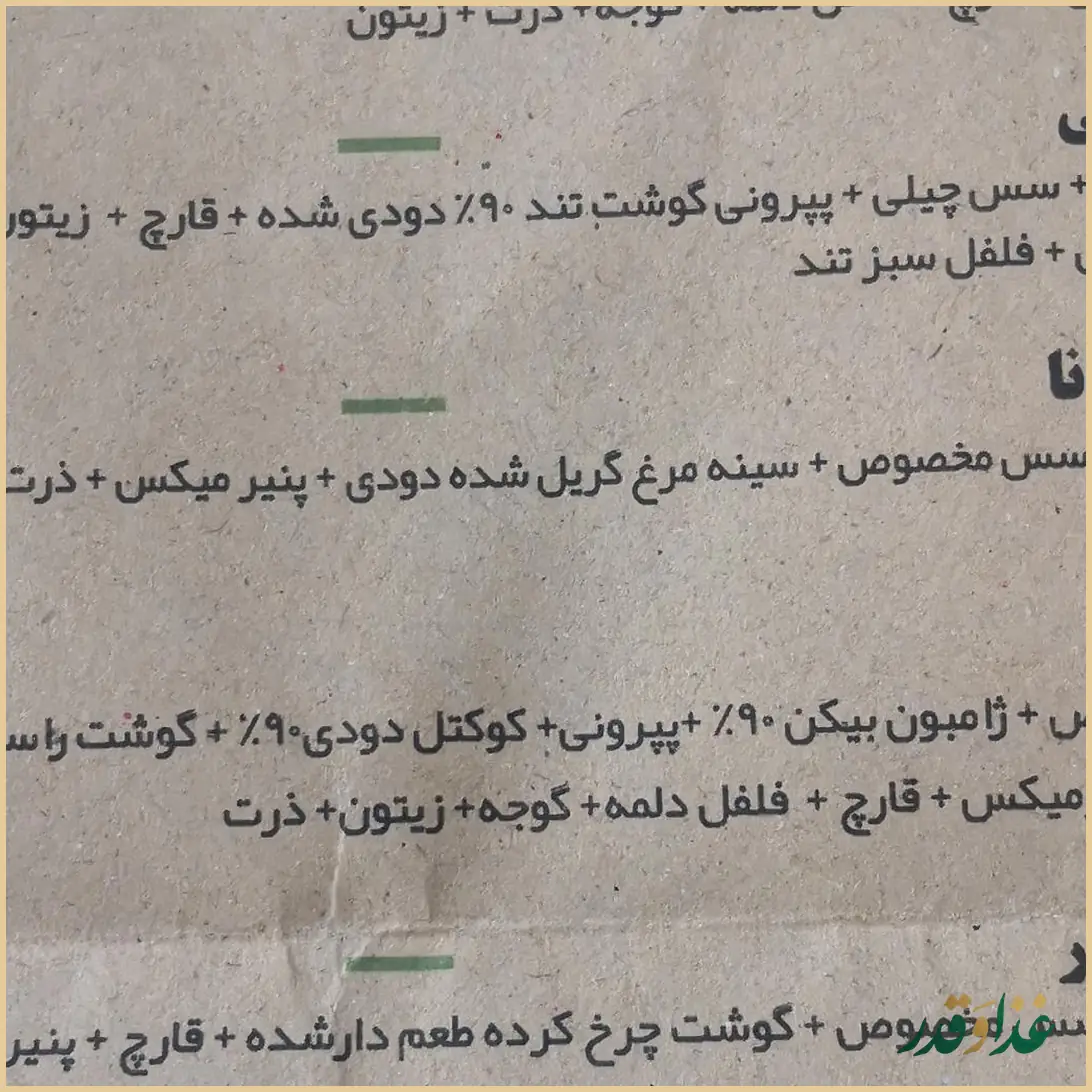 گوجه + ذرت + زیتون
+ سس چیلی + پپرونی گوشت تند ۹۰٪ دودی شده + قارچ + زیتون
+ فلفل سبز تند
نا
سس مخصوص + سینه مرغ گریل شده دودی + پنیر میکس + ذرت
+ ژامبون بیکن ۹۰٪ +پپرونی+ کوکتل دودی۹۰٪ + گوشت
میکس + قارچ + فلفل دلمه+ گوجه+ زیتون+ ذرت
سس مخصوص + گوشت چرخ کرده طعم دارشده + قارچ + پنیر
غذا و قدر